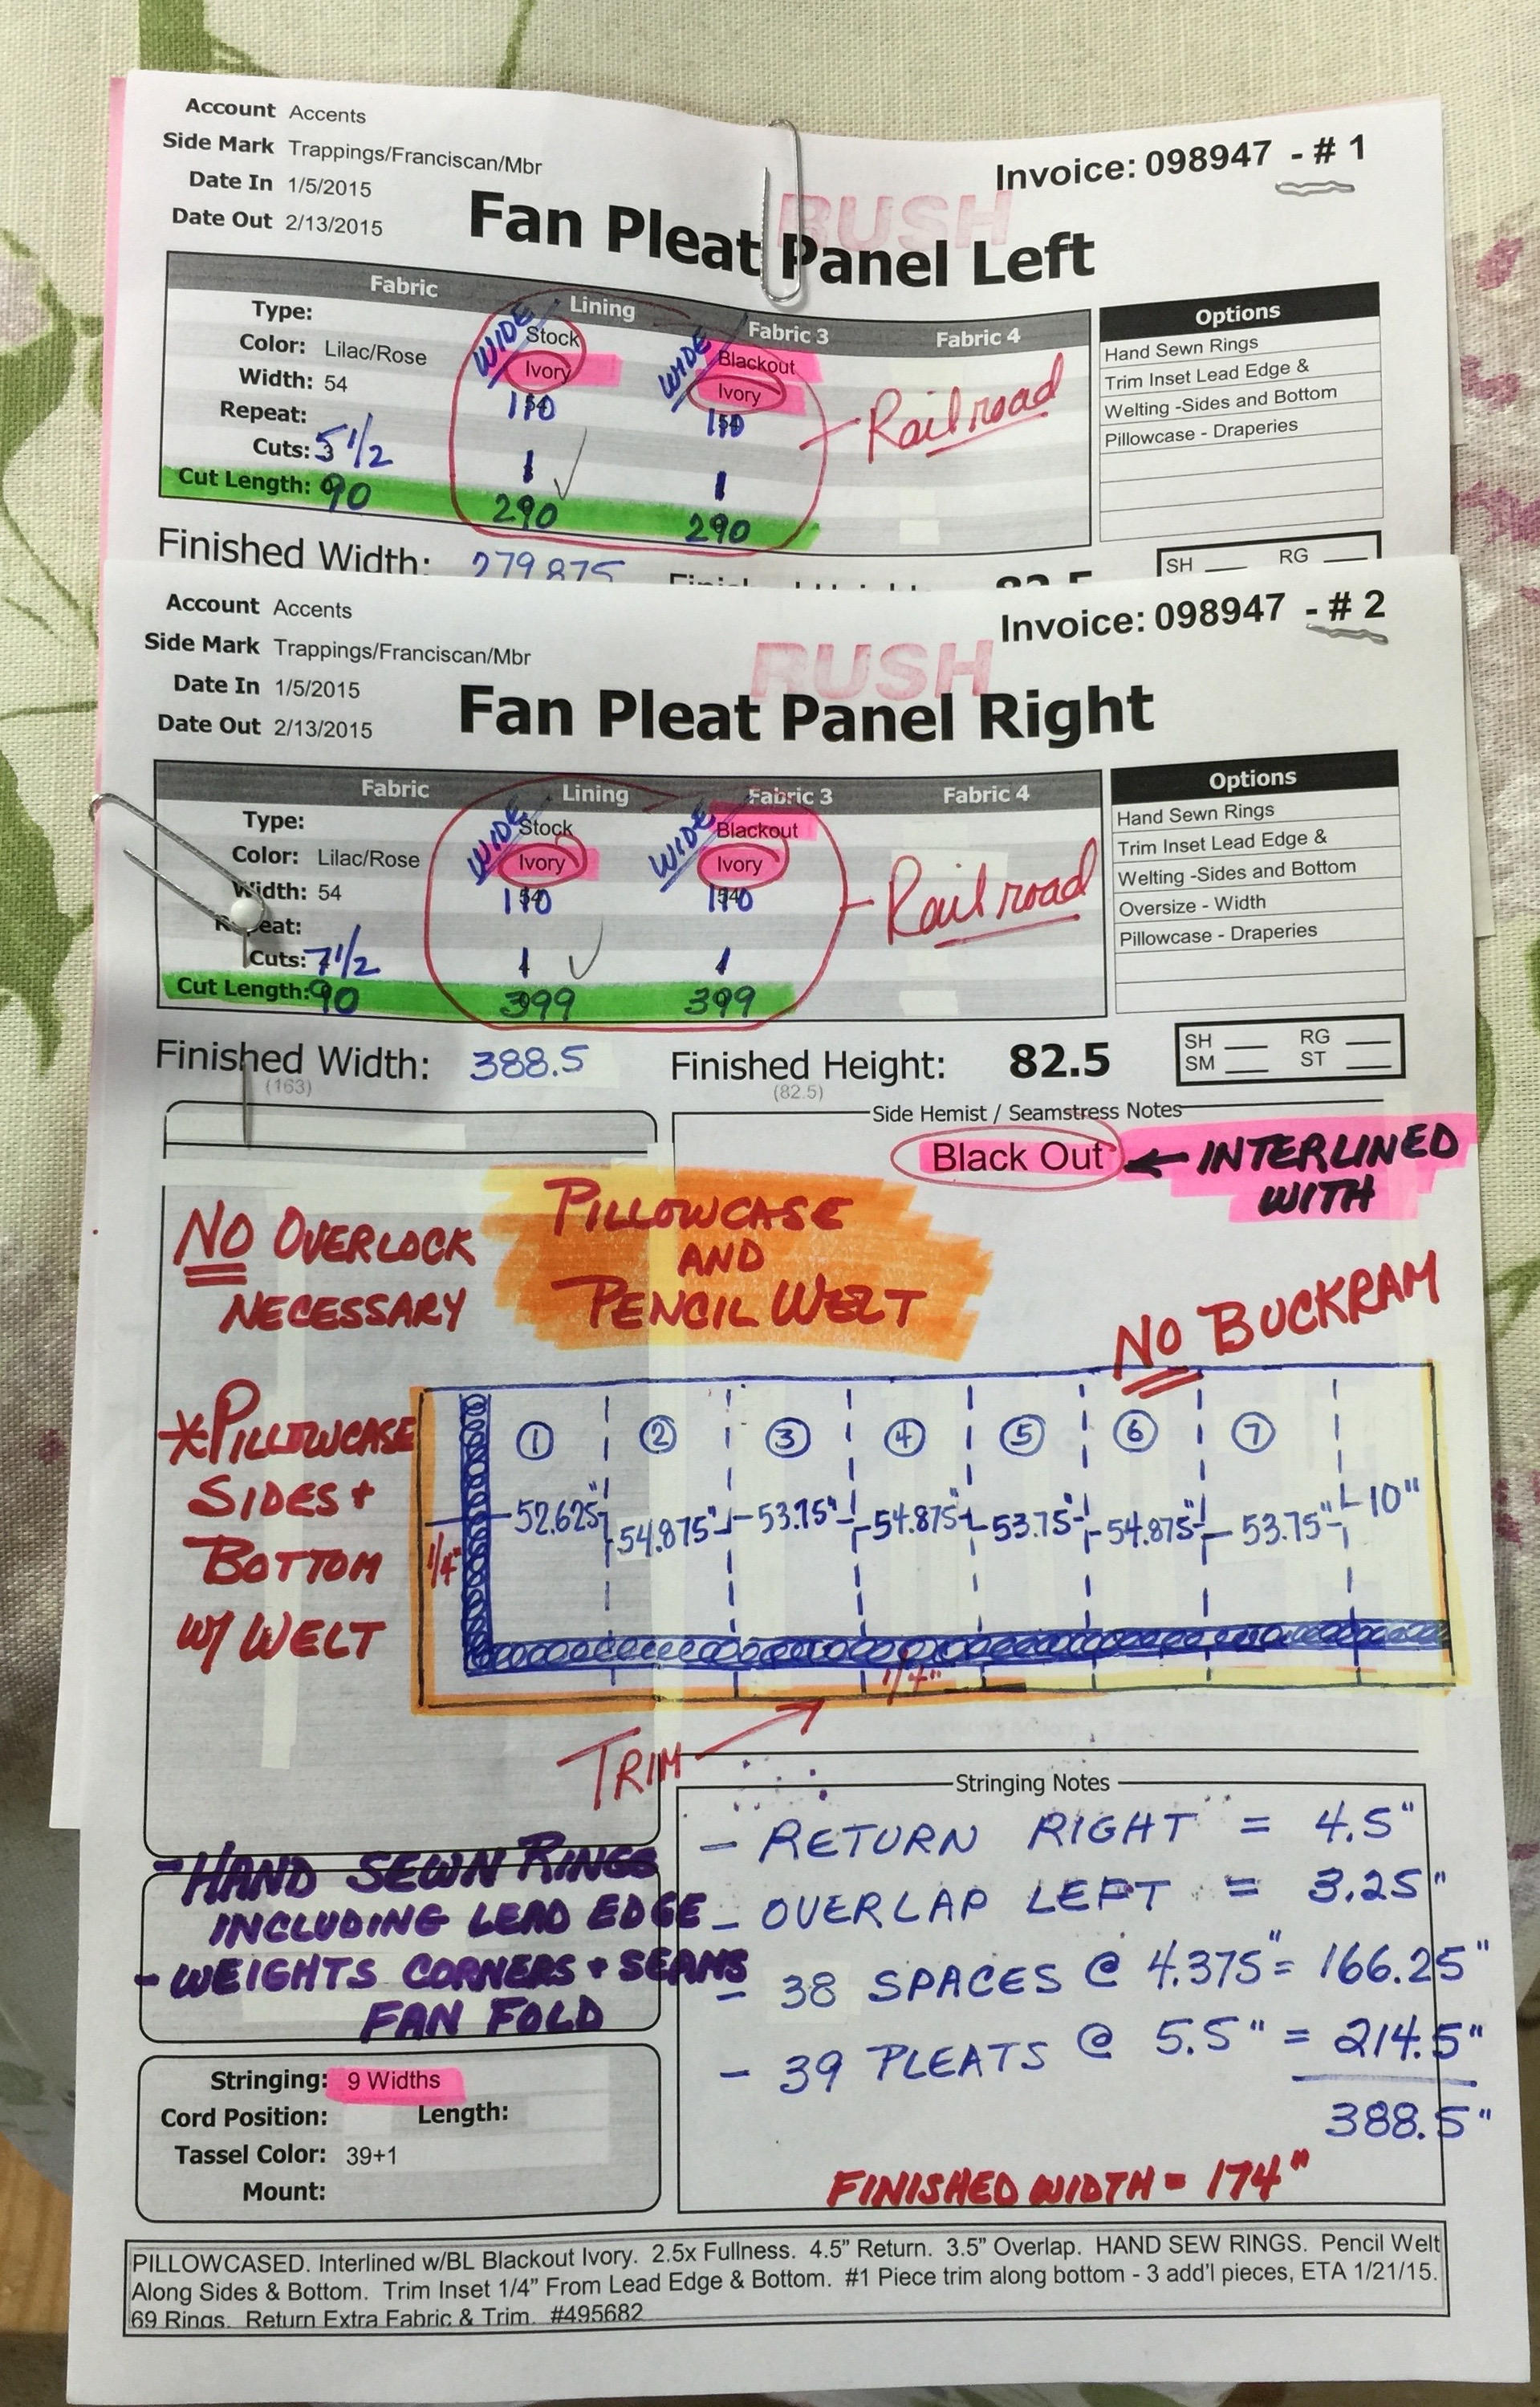 Account Accents
Side Mark Trappings/Franciscan/Mbr
Date In 1/5/2015
Date Out 2/13/2015
Invoice: 098947 - # 1
RUSH
Fan Pleat Panel Left
Fabric Lining Fabric 3 Fabric 4
Type: WIDE Stock WIDE Blackout
Color: Lilac/Rose Ivory Ivory
Width: 54 110 110
Repeat:
Cuts: 5 1/2 1 1
Cut Length: 90 290 290
Railroad
Options
Hand Sewn Rings
Trim Inset Lead Edge &
Welting -Sides and Bottom
Pillowcase - Draperies
Finished Width: 279.875
82.5
SH RG
Account Accents
Side Mark Trappings/Franciscan/Mbr
Date In 1/5/2015
Date Out 2/13/2015
Invoice: 098947 - # 2
RUSH
Fan Pleat Panel Right
Fabric Lining Fabric 3 Fabric 4
Type: WIDE Stock WIDE Blackout
Color: Lilac/Rose Ivory Ivory
Width: 54 110 110
Repeat:
Cuts: 7 1/2 1 1
Cut Length: 90 399 399
Railroad
Options
Hand Sewn Rings
Trim Inset Lead Edge &
Welting -Sides and Bottom
Oversize - Width
Pillowcase - Draperies
Finished Width: 388.5 Finished Height: 82.5
(163) (82.5)
SH RG
SM ST
Side Hemist / Seamstress Notes
Black Out ← INTERLINED
WITH
NO OVERLOCK
NECESSARY
PILLOWCASE
AND
PENCIL WELT
NO BUCKRAM
*PILLOWCASE
SIDES +
BOTTOM
W/ WELT
1 2 3 4 5 6 7
52.625" 54.875" 53.75" 54.875" 53.75" 54.875" 53.75" 10"
1/4"
1/4"
TRIM
- HAND SEWN RINGS
INCLUDING LEAD EDGE
- WEIGHTS CORNERS + SEAMS
FAN FOLD
Stringing Notes
- RETURN RIGHT = 4.5"
- OVERLAP LEFT = 3.25"
- 38 SPACES @ 4.375" = 166.25"
- 39 PLEATS @ 5.5" = 214.5"
388.5"
FINISHED WIDTH = 174"
Stringing: 9 Widths
Cord Position: Length:
Tassel Color: 39+1
Mount:
PILLOWCASED. Interlined w/BL Blackout Ivory. 2.5x Fullness. 4.5” Return. 3.5” Overlap. HAND SEW RINGS. Pencil Welt
Along Sides & Bottom. Trim Inset 1/4” From Lead Edge & Bottom. #1 Piece trim along bottom - 3 add'l pieces, ETA 1/21/15.
69 Rings. Return Extra Fabric & Trim. #495682